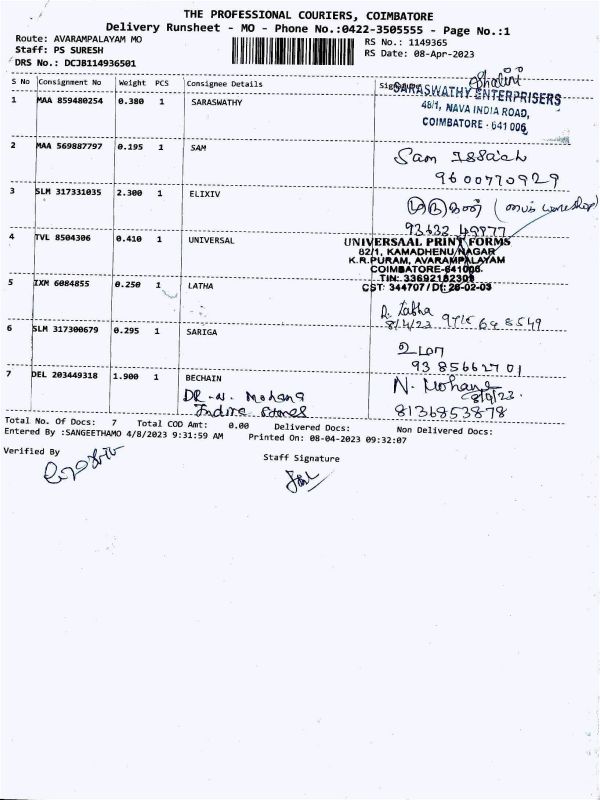 THE PROFESSIONAL COURIERS, COIMBATORE
Delivery Runsheet - MO - Phone No.:0422-3505555 - Page No.:1
Route: AVARAMPALAYAM MO
Staff: PS SURESH
DRS No.: DCJB114936501
RS No.: 1149365
RS Date: 08-Apr-2023
S No Consignment No Weight PCS Consignee Details Signature
1 MAA 859480254 0.380 1 SARASWATHY
SARASWATHY ENTERPRISERS
48/1, NAVA INDIA ROAD,
COIMBATORE - 641 006
2 MAA 569887797 0.195 1 SAM
Sam
9600770929
3 SLM 317331035 2.300 1 ELIXIV
4 TVL 8504306 0.410 1 UNIVERSAL
UNIVERSAAL PRINT FORMS
82/1, KAMADHENU NAGAR
K.R.PURAM, AVARAMPALAYAM
COIMBATORE-641006.
TIN: 33692182309
CST: 344707 / Dt: 28-02-03
5 IXM 6084855 0.250 1 LATHA
R. Latha
8/4/23
6 SLM 317300679 0.295 1 SARIGA
உமா
93 85662701
7 DEL 203449318 1.900 1 BECHAIN
DR. N. Mohana
N. Mohana
8136853878
Total No. Of Docs: 7 Total COD Amt: 0.00 Delivered Docs: Non Delivered Docs:
Entered By :SANGEETHAMO 4/8/2023 9:31:59 AM Printed On: 08-04-2023 09:32:07
Verified By
Staff Signature